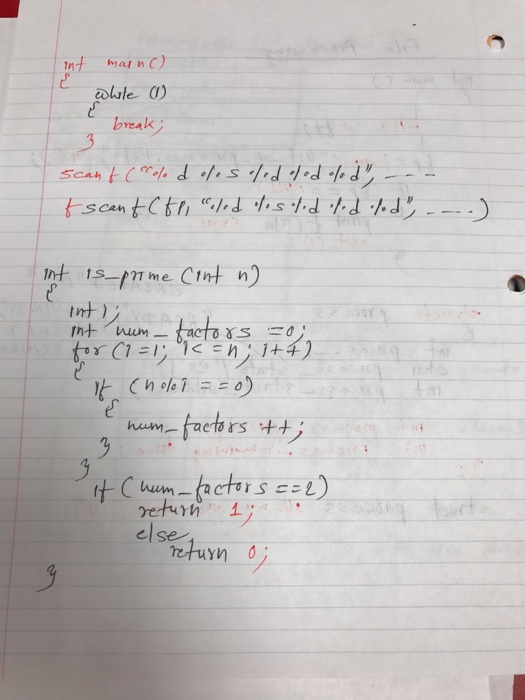 int main()
{
while (1)
{
break;
}
scanf ("%d %s %d %d %d", ----
fscanf(fp, "%d %s %d %d %d", ----)
int is_prime (int n)
{
int i;
int num_factors =0;
for (i=1; i<=n; i++)
{
if (n%i ==0)
{
num_factors ++;
}
}
if (num_factors ==2)
return 1;
else
return 0;
}